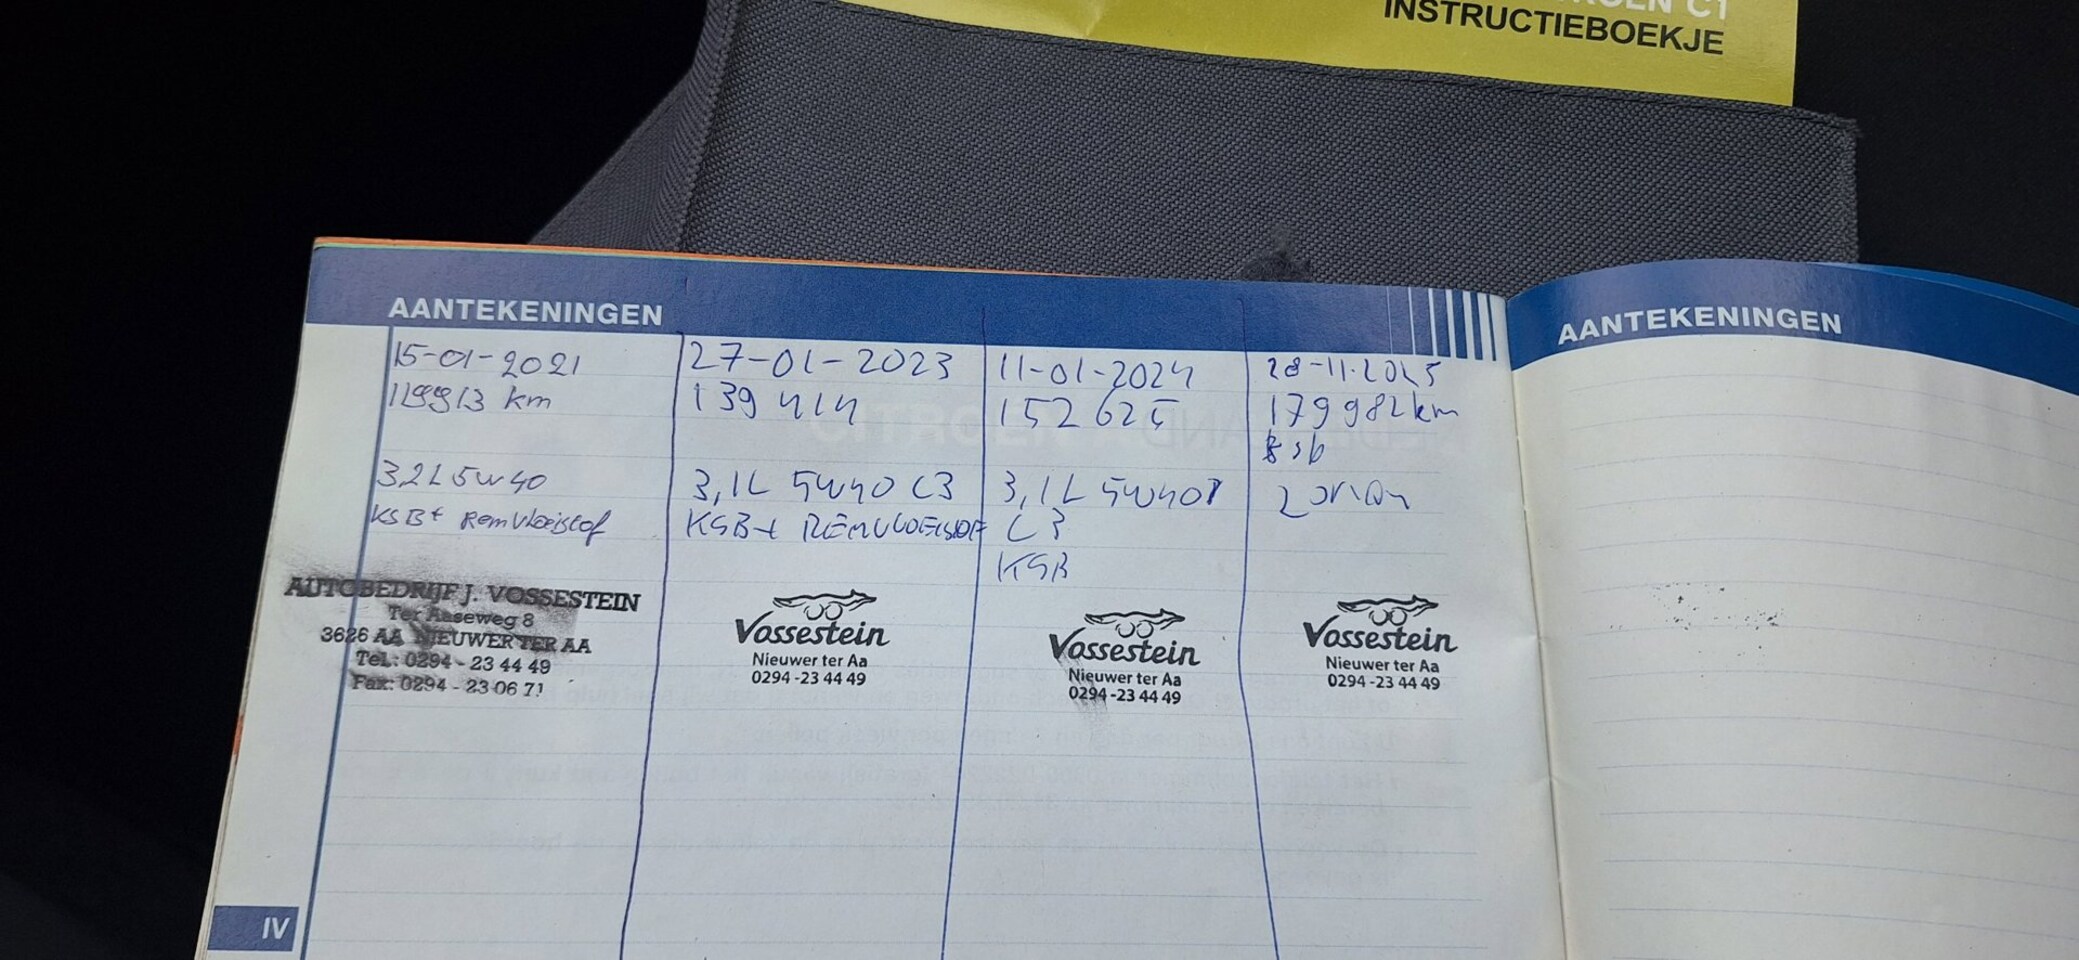 CITROEN C1
INSTRUCTIEBOEKJE
AANTEKENINGEN
15-01-2021
119913 km
3,2L 5W40
KSB + Remvloeistof
AUTOBEDRIJF J. VOSSESTEIN
Ter Aaseweg 8
3626 AA NIEUWER TER AA
Tel.: 0294 - 23 44 49
Fax: 0294 - 23 06 71
27-01-2023
139 414
3,1L 5W40 C3
KSB + REMVLOEISTOF
Vossestein
Nieuwer ter Aa
0294 -23 44 49
11-01-2024
152 625
3,1L 5W40
C3
KSB
Vossestein
Nieuwer ter Aa
0294 -23 44 49
28-11-2025
179 982 km
ksb
Vossestein
Nieuwer ter Aa
0294 -23 44 49
IV
AANTEKENINGEN